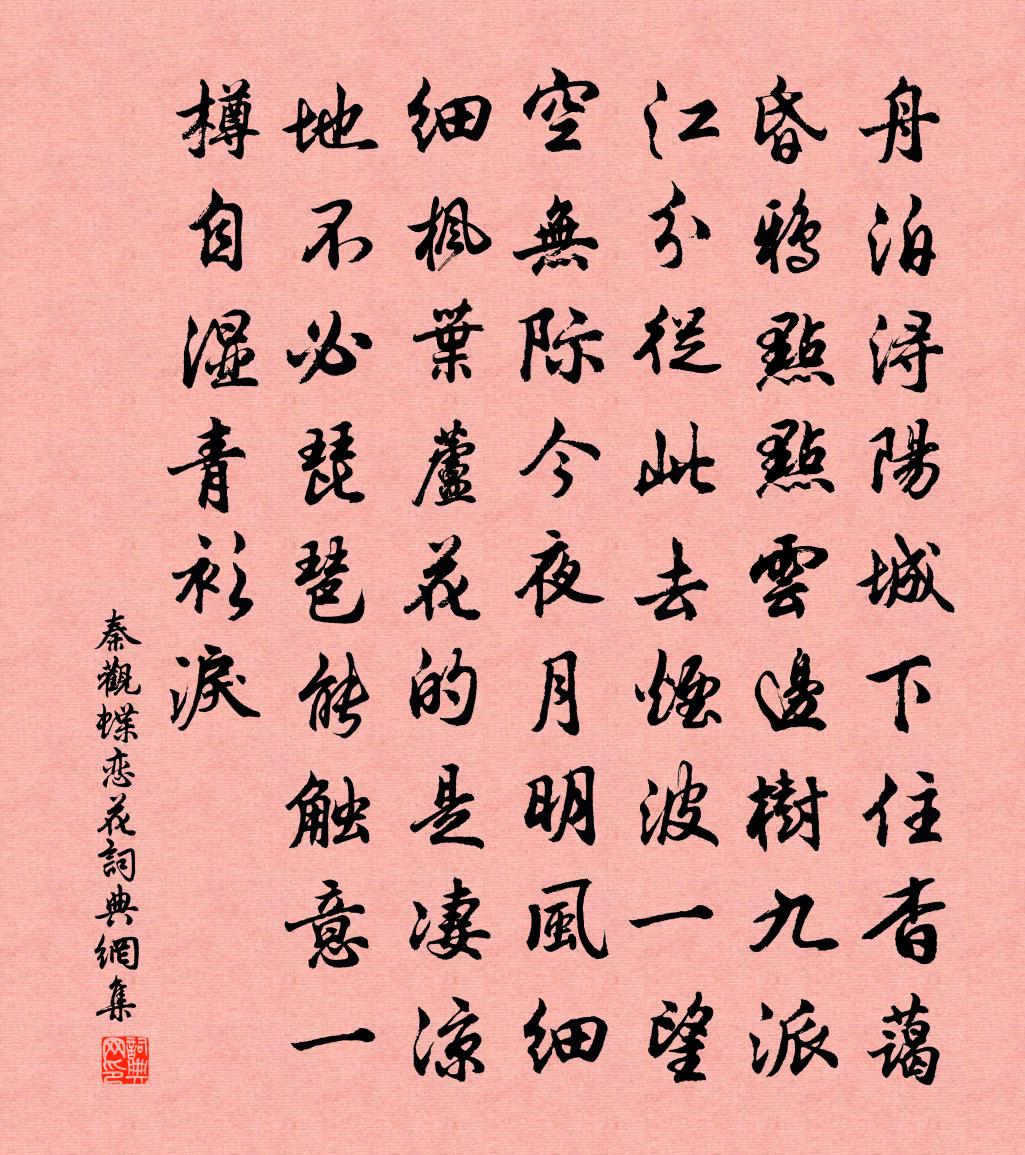 舟泊浔陽城下住杳藹
昏鴉點點雲邊樹九派
江分從此去煙波一望
空無际今夜月明風細
細楓葉蘆花的是凄涼
地不必琵琶能触意一
樽自湿青衫淚
秦觀蝶恋花詞典網集
詞典网印